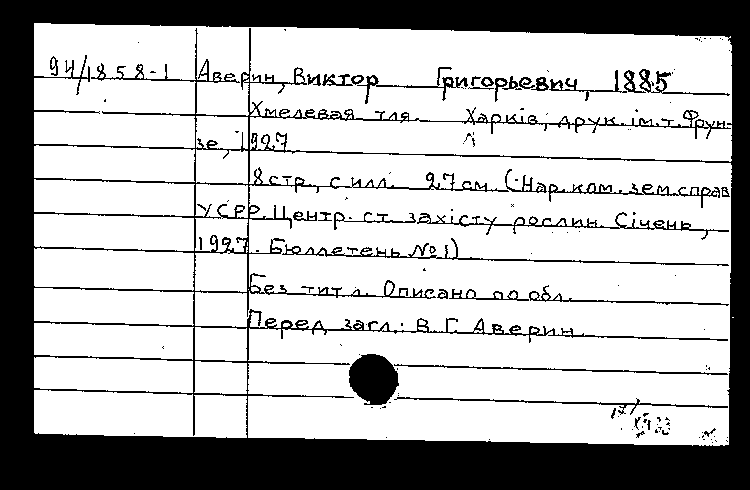 94/1858-1 Аверин, Виктор Григорьевич, 1885
Хмелевая тля. Харків, друк. ім. т. Фрун-
зе, 1927.
8 стр., с илл. 27 см. (Нар. ком. зем. справ
УСРР. Центр. ст. захісту рослин. Січень,
1927. Бюллетень №1)
Без титл. Описано по обл.
Перед загл.: В. Г. Аверин.